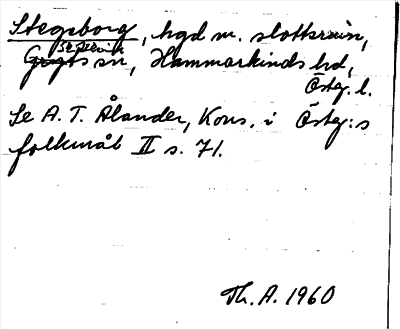 Stegeborg, hgd m. slottsruin,
Skällvik
sn, Hammarkinds hd,
Östg. l.
Se A. T. Ålander, Kons. i Östg:s
folkmål II s. 71.
Th. A. 1960